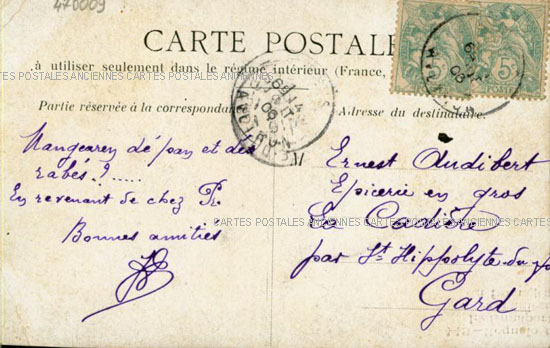 470009
CARTE POSTALE
à utiliser seulement dans le régime intérieur (France,
CARTES POSTALES ANCIENNES CARTES POSTALES ANCIENNES
Partie réservée à la correspondance
Adresse du destinataire.
Mangearen dé pan et des
rabés.?.....
En revenant de chez Pr.
Bonnes amitiés
M
Ernest Audibert
Epicerie en gros
La Cadière
par St Hippolyte-du-
Gard
5c
5c